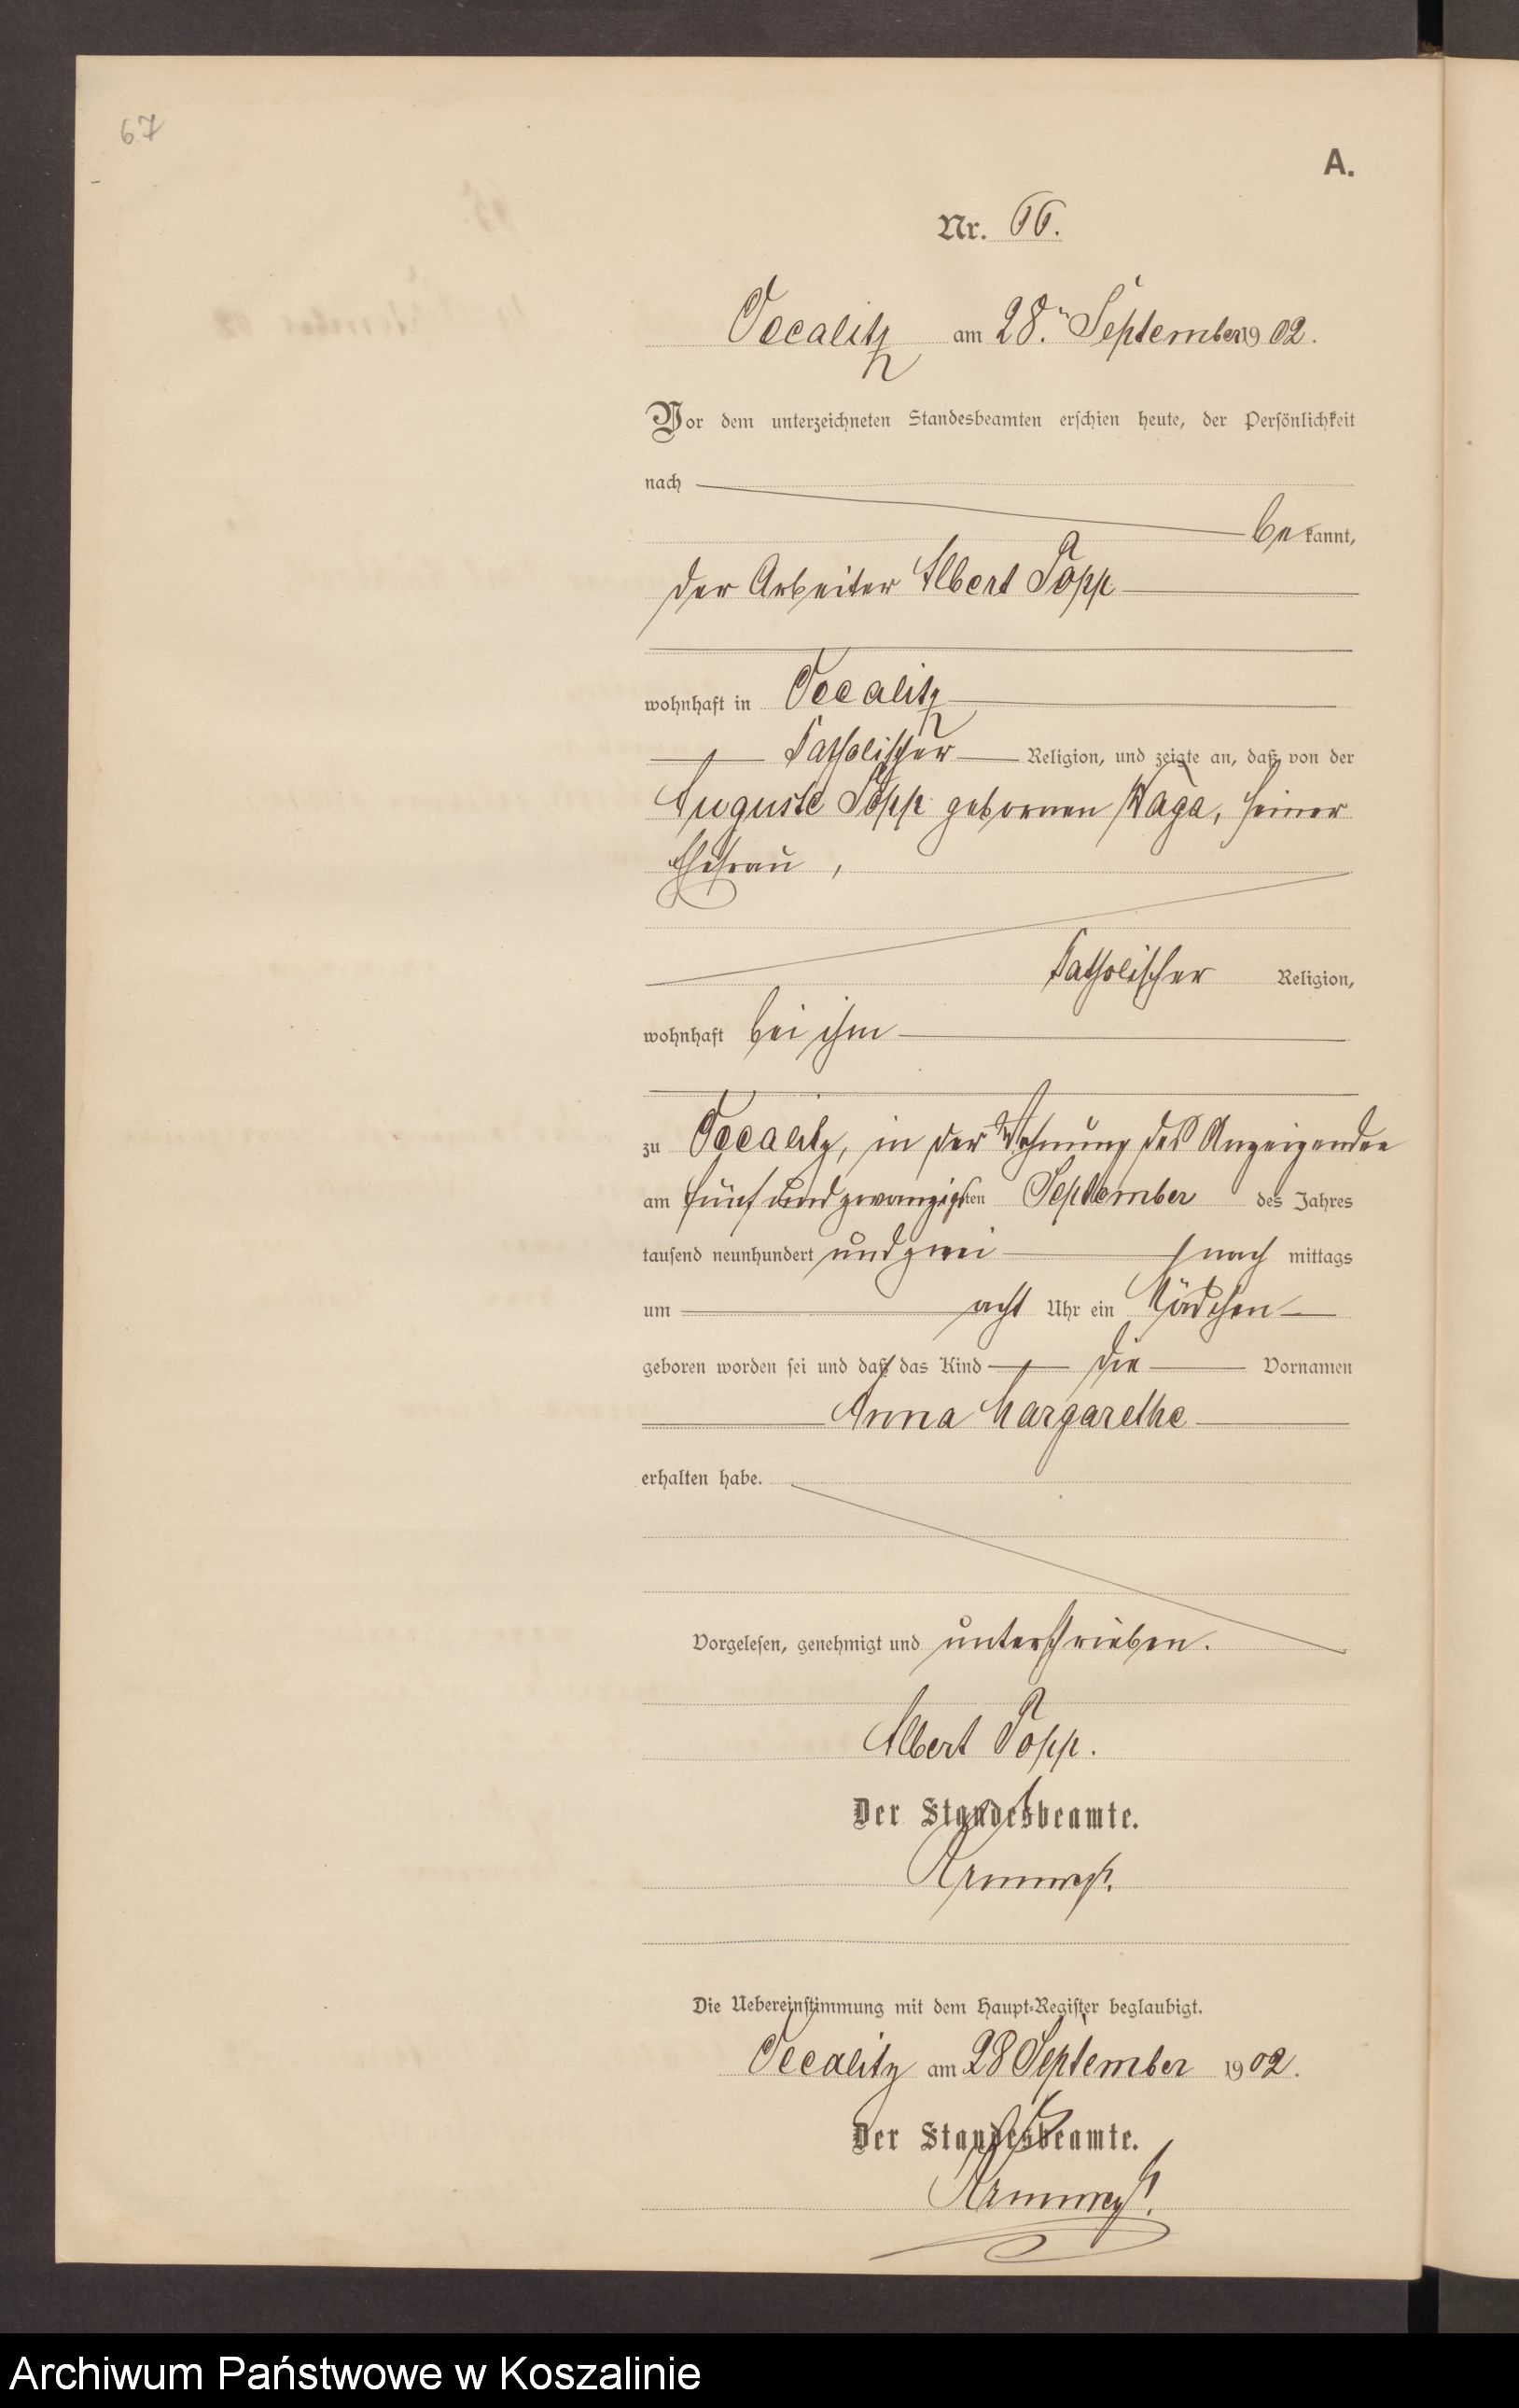 67
A.
Nr. 66.
Occalitz am 28.ⁿ September 1902.
Vor dem unterzeichneten Standesbeamten erschien heute, der Persönlichkeit
nach
be kannt,
der Arbeiter Albert Popp
wohnhaft in Occalitz
katholischer Religion, und zeigte an, daß von der
Auguste Popp gebornen Raga, seiner
Ehefrau,
katholischer Religion,
wohnhaft bei ihm
zu Occalitz, in der Wohnung des Anzeigenden
am fünf und zwanzigsten September des Jahres
tausend neunhundert und zwei nach mittags
um acht Uhr ein Mädchen
geboren worden sei und daß das Kind die Vornamen
Anna Margarethe
erhalten habe.
Vorgelesen, genehmigt und unterschrieben.
Albert Popp.
Der Standesbeamte.
Die Uebereinstimmung mit dem Haupt-Register beglaubigt.
Occalitz am 28 September 1902.
Der Standesbeamte.
Archiwum Państwowe w Koszalinie